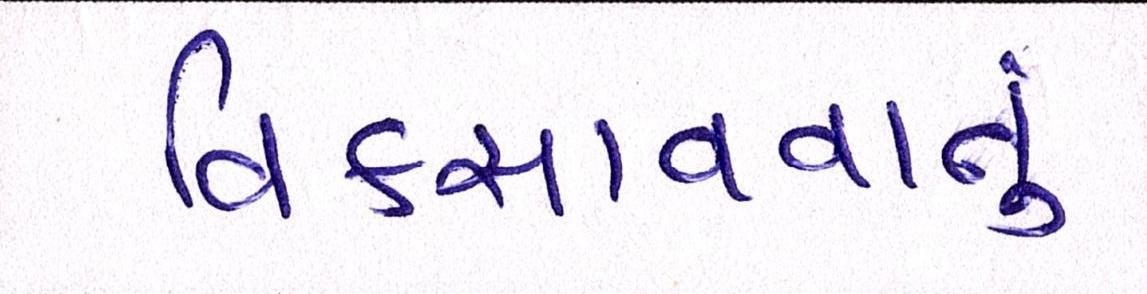 વિકસાવવાનું